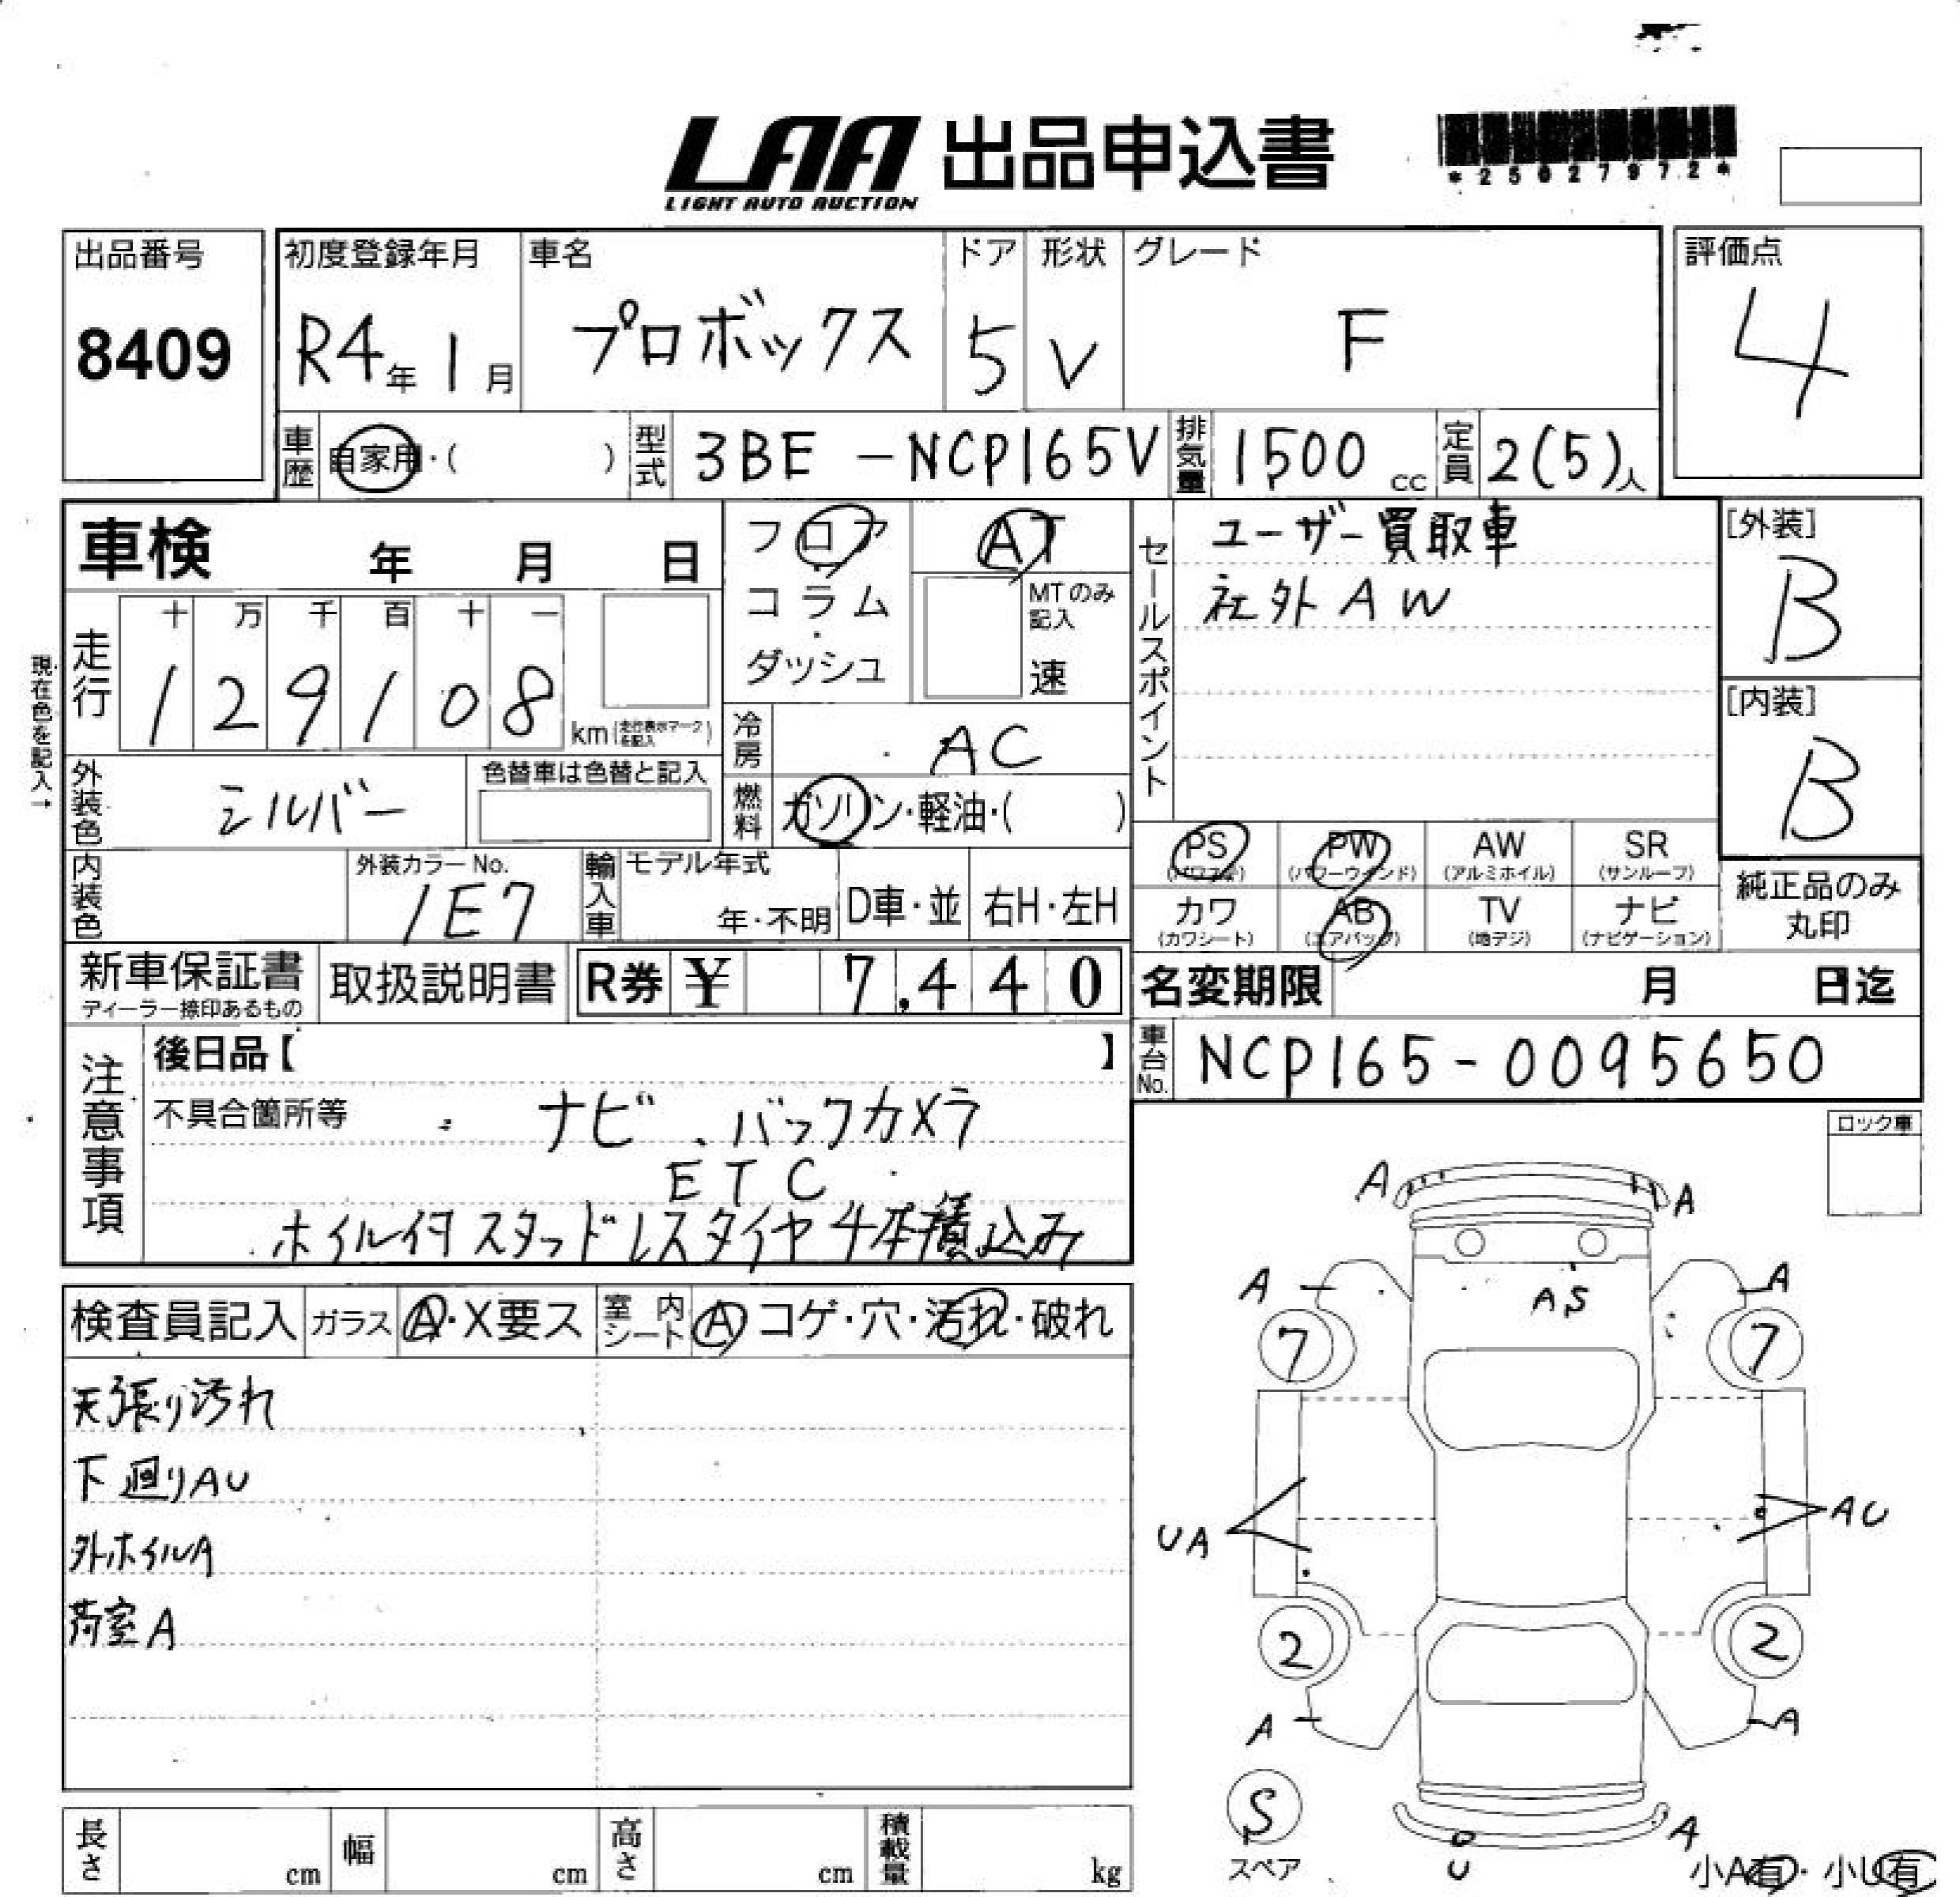 LAA 出品申込書
LIGHT AUTO AUCTION
*25027972*
出品番号
8409
初度登録年月
R4年 1月
車名
プロボックス
ドア
5
形状
V
グレード
F
評価点
4
車歴
自家用・( )
型式
3BE -NCP165V
排気量
1500 cc
定員
2(5)人
車検 年 月 日
走行
十 万 千 百 十 一
1 2 9 1 0 8
km(走行表示マークを記入)
現在色を記入→
外装色
シルバー
色替車は色替と記入
内装色
外装カラーNo.
1E7
フロア
コラム
・
ダッシュ
AT
MTのみ記入
速
冷房
AC
燃料
ガソリン・軽油・( )
輸入車
モデル年式
年・不明
D車・並
右H・左H
セールスポイント
ユーザー買取車
社外AW
[外装]
B
[内装]
B
PS
(パワステ)
PW
(パワーウインド)
AW
(アルミホイル)
SR
(サンルーフ)
カワ
(カワシート)
AB
(エアバッグ)
TV
(地デジ)
ナビ
(ナビゲーション)
純正品のみ
丸印
新車保証書
ディーラー捺印あるもの
取扱説明書
R券 ¥ 7,440
名変期限 月 日迄
車台No.
NCP165-0095650
注意事項
後日品【 】
不具合箇所等
ナビ、バックカメラ
ETC
ホイル付スタッドレスタイヤ4本積込み
ロック車
検査員記入
ガラス
A・X要ス
室内シート
A コゲ・穴・汚れ・破れ
天張り汚れ
下廻りAU
外ホイルA
荷室A
A
A
A
A
AS
7
7
UA
AU
2
2
A
A
S
スペア
U
A
小A有・小U有
長さ cm
幅 cm
高さ cm
積載量 kg